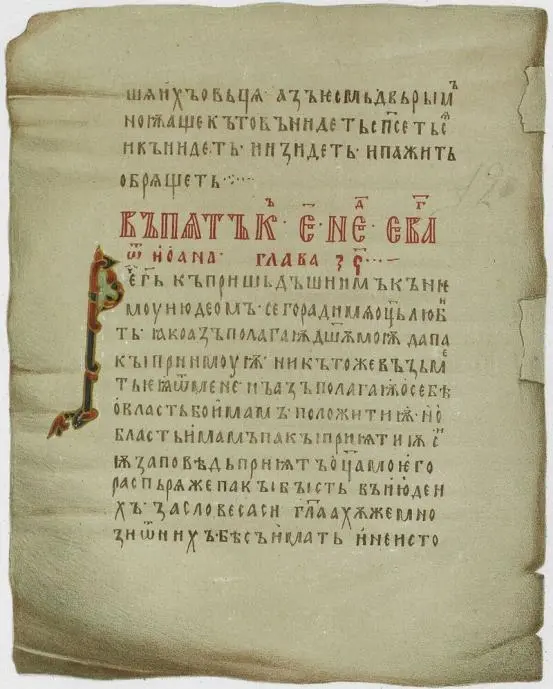 шѧи́хъовьцѧ · азъѥсмьдвьрьмъ
ноѭ҅ащекътовънидетьсп҃сетьсѧ
икънидеть · инзидеть · ипажить
обрѧщеть ·:···
въпѧтък҃ъ · е҃ · нед҃ · еваг҃
ѿ и҅о҅ана · глава з҃ѕ҃ ···—
Рег҃ькъпришьдъшиимъкъне
моуиюдеомъ · сегорадимѧоц҃ьлюби
ть · ꙗкоазъполагаѭдш҃ѫмоѭ дапа
кыприимоуѭ · никътожевъзьме
тьеѩѿмене · нъазъполагаѭѡсебѣ
ѡвластьбоимамъ · положитиѭ · и҅о
бластьимамъпакыприѩтиѭ си҃
ѭзаповѣдьприѩтъѡц҃амоѥго
распьрѧжепакыбысть въиюдеи
хъ · засловесаси гл҃аахѫжемно
зиѿнихъ · бѣсъи҅мать и҅неисто